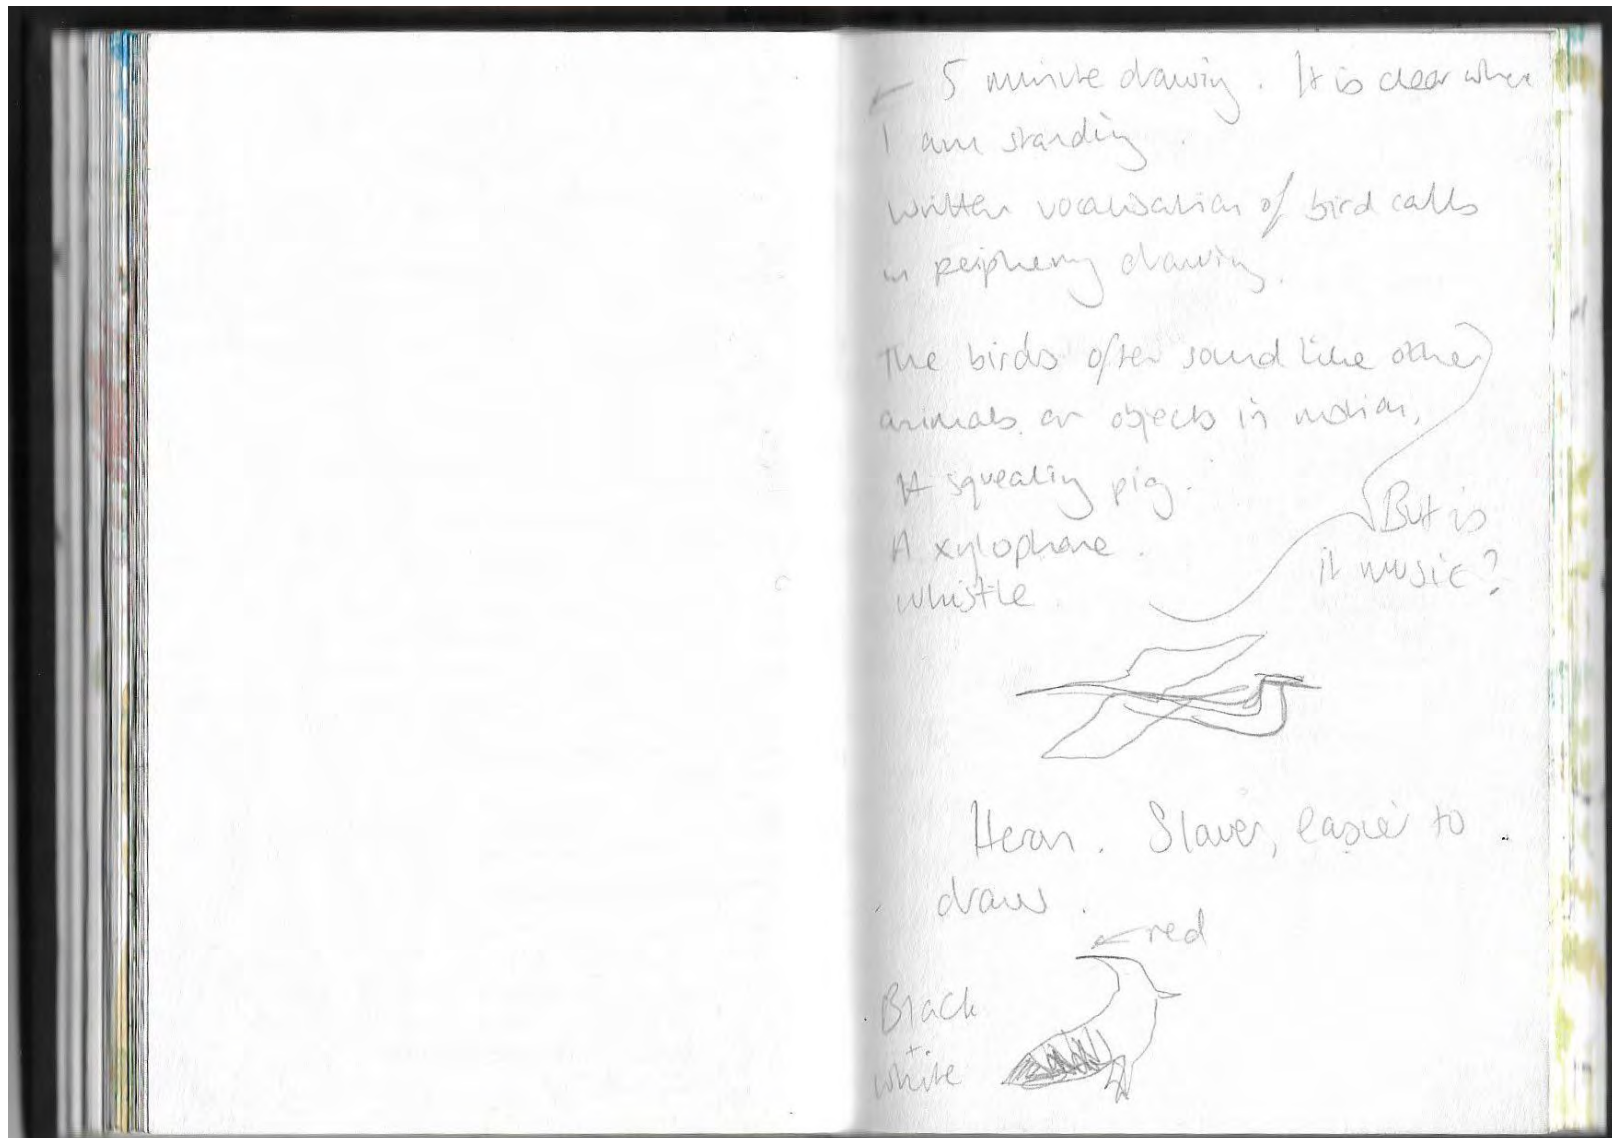 ← 5 minute drawing. It is clear where
I am standing.
written vocalisation of bird calls
in periphery drawing.
The birds often sound like other
animals or objects in motion,
A squealing pig.
A xylophone.
whistle.
But is
it music?
Heron. Slower, easier to
draw.
← red
Black
+
white